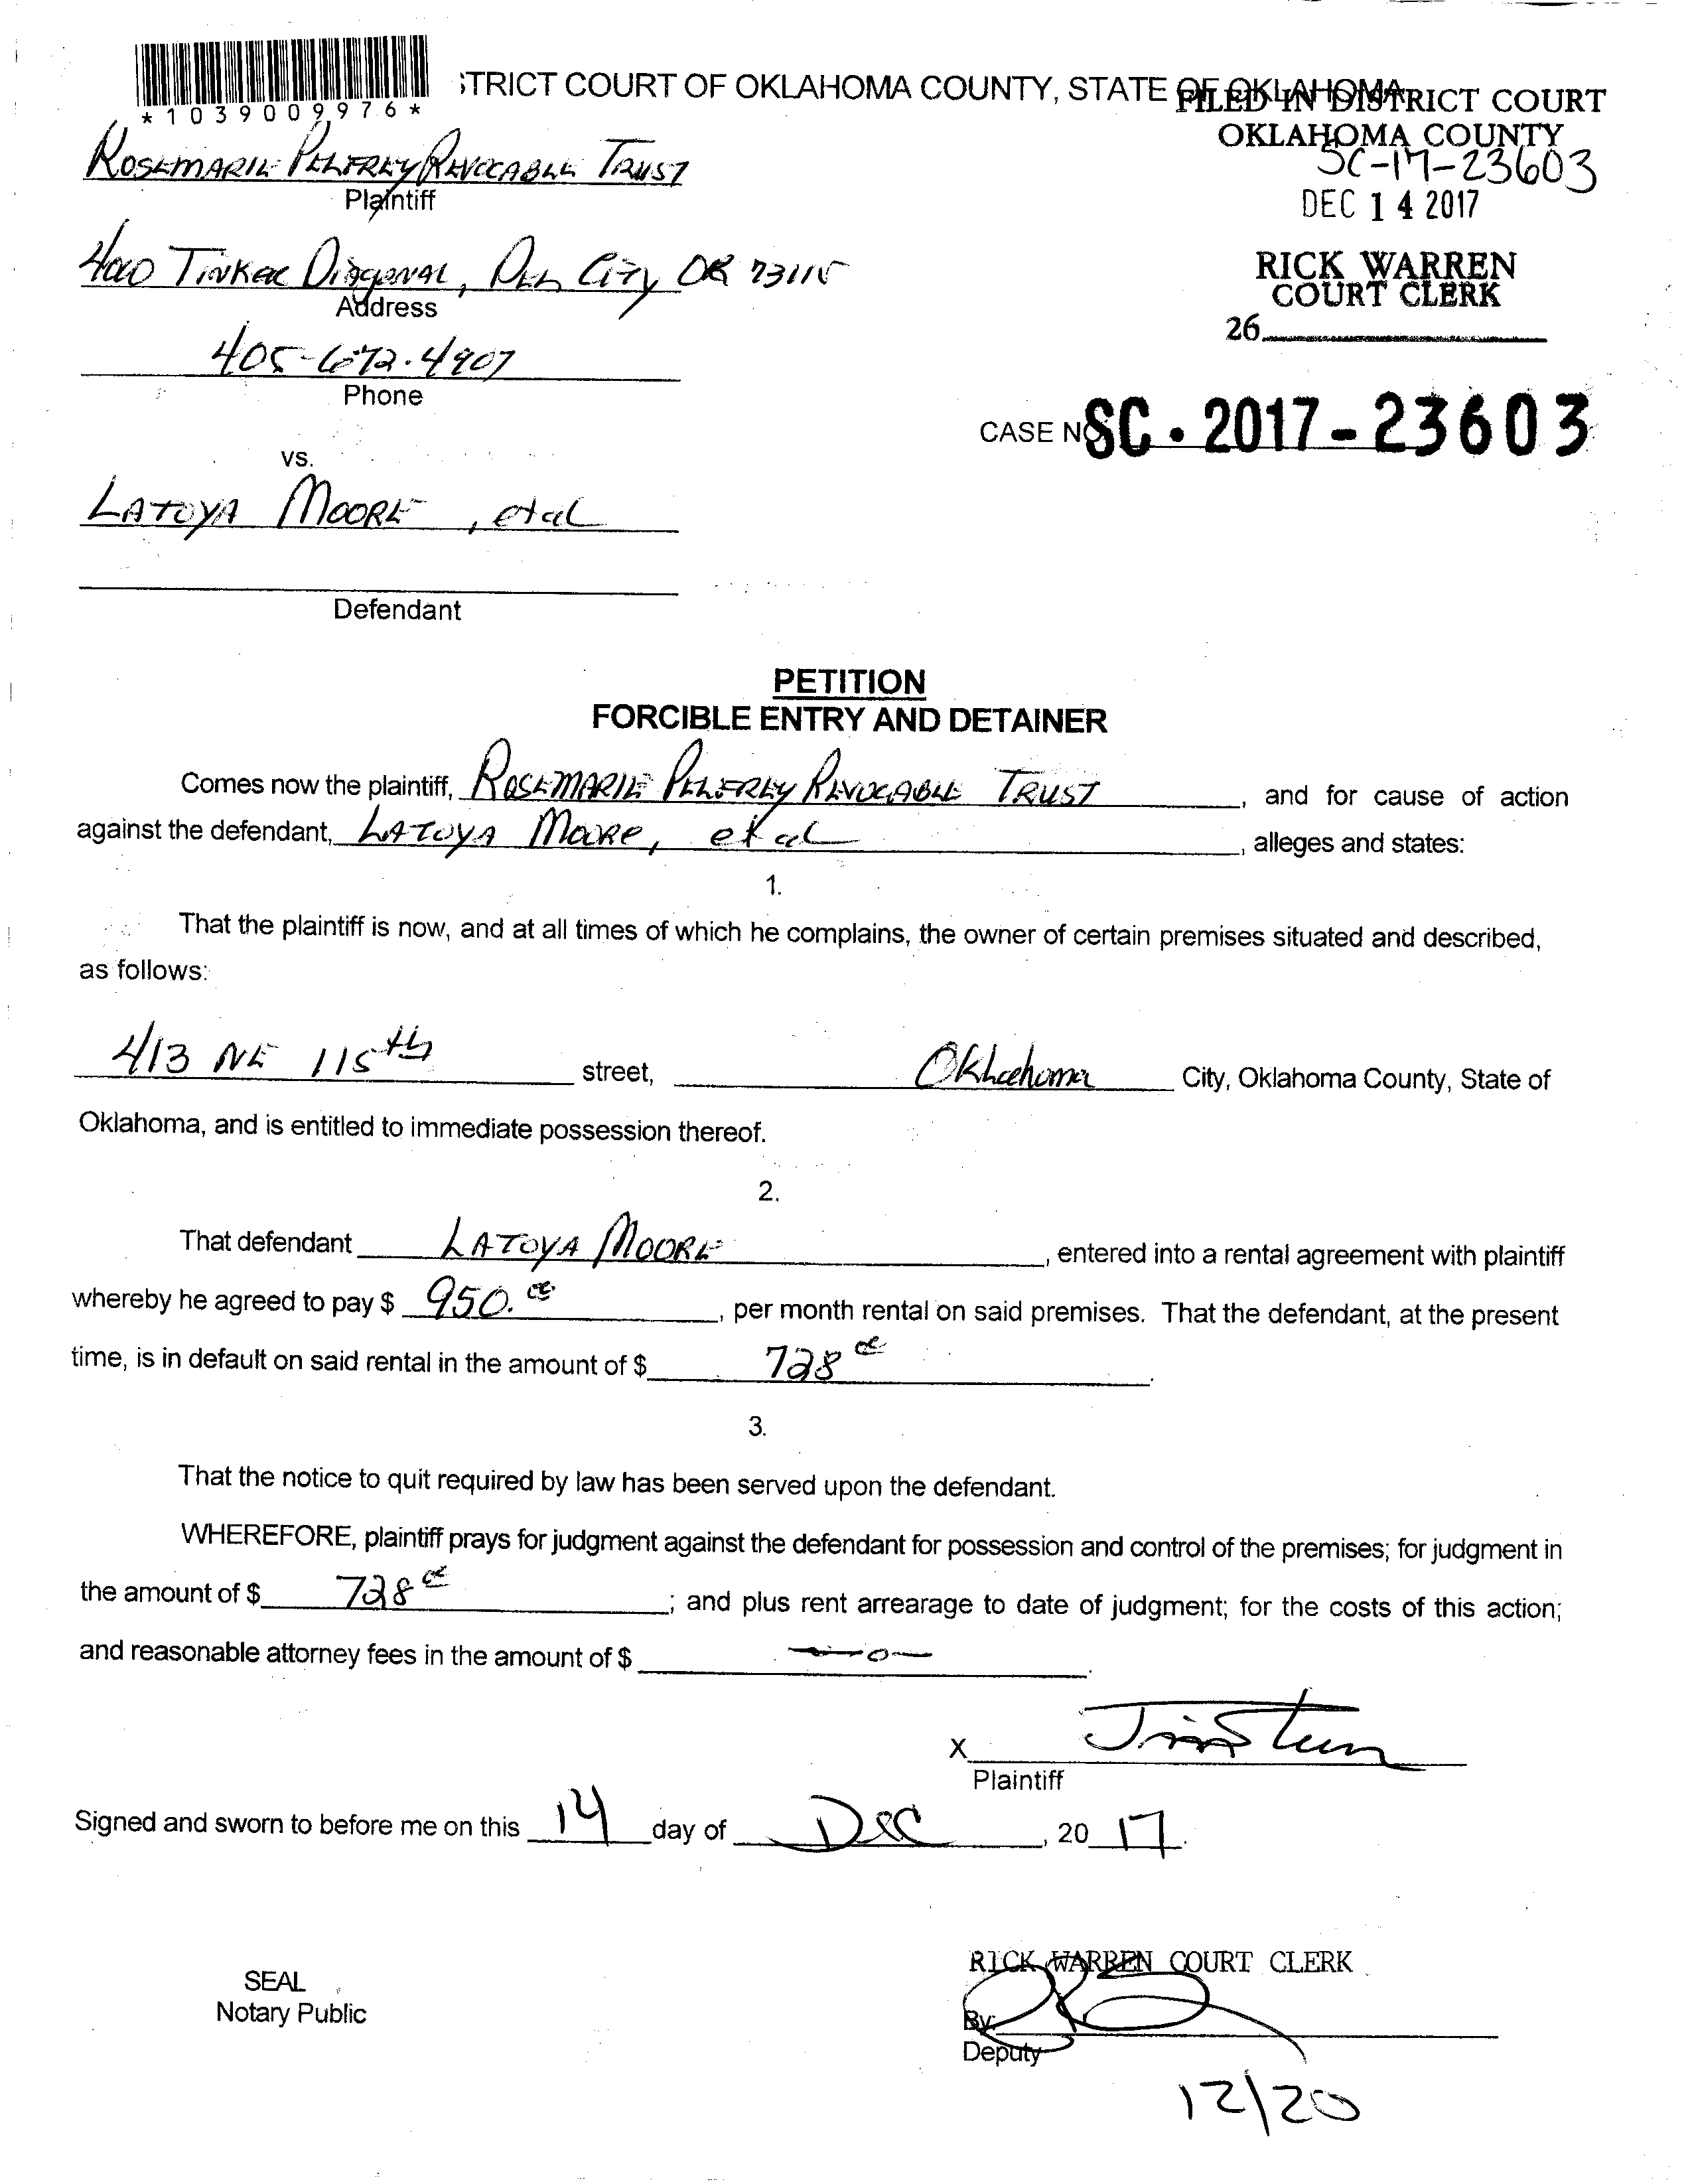 STRICT COURT OF OKLAHOMA COUNTY, STATE OF OKLAHOMA
*1039009976*
FILED IN DISTRICT COURT
OKLAHOMA COUNTY
SC-17-23603
DEC 14 2017
RICK WARREN
COURT CLERK
26
ROSEMARIE PELFREY REVOCABLE TRUST
Plaintiff
TINKER DIAGONAL, DEL CITY OK 73115
Address
405-672-4907
Phone
CASE NO SC-2017-23603
vs.
LATOYA MOORE, et al
Defendant
PETITION
FORCIBLE ENTRY AND DETAINER
Comes now the plaintiff, ROSEMARIE PELFREY REVOCABLE TRUST, and for cause of action
against the defendant, LATOYA MOORE, et al, alleges and states:
1.
That the plaintiff is now, and at all times of which he complains, the owner of certain premises situated and described,
as follows:
413 NE 115th street, Oklahoma City, Oklahoma County, State of
Oklahoma, and is entitled to immediate possession thereof.
2.
That defendant LATOYA MOORE, entered into a rental agreement with plaintiff
whereby he agreed to pay $ 950.00, per month rental on said premises. That the defendant, at the present
time, is in default on said rental in the amount of $ 728 00.
3.
That the notice to quit required by law has been served upon the defendant.
WHEREFORE, plaintiff prays for judgment against the defendant for possession and control of the premises; for judgment in
the amount of $ 728 00; and plus rent arrearage to date of judgment; for the costs of this action;
and reasonable attorney fees in the amount of $ —0—.
X
Plaintiff
Signed and sworn to before me on this 14 day of Dec, 20 17.
RICK WARREN COURT CLERK
SEAL
Notary Public
By:
Deputy
12/20